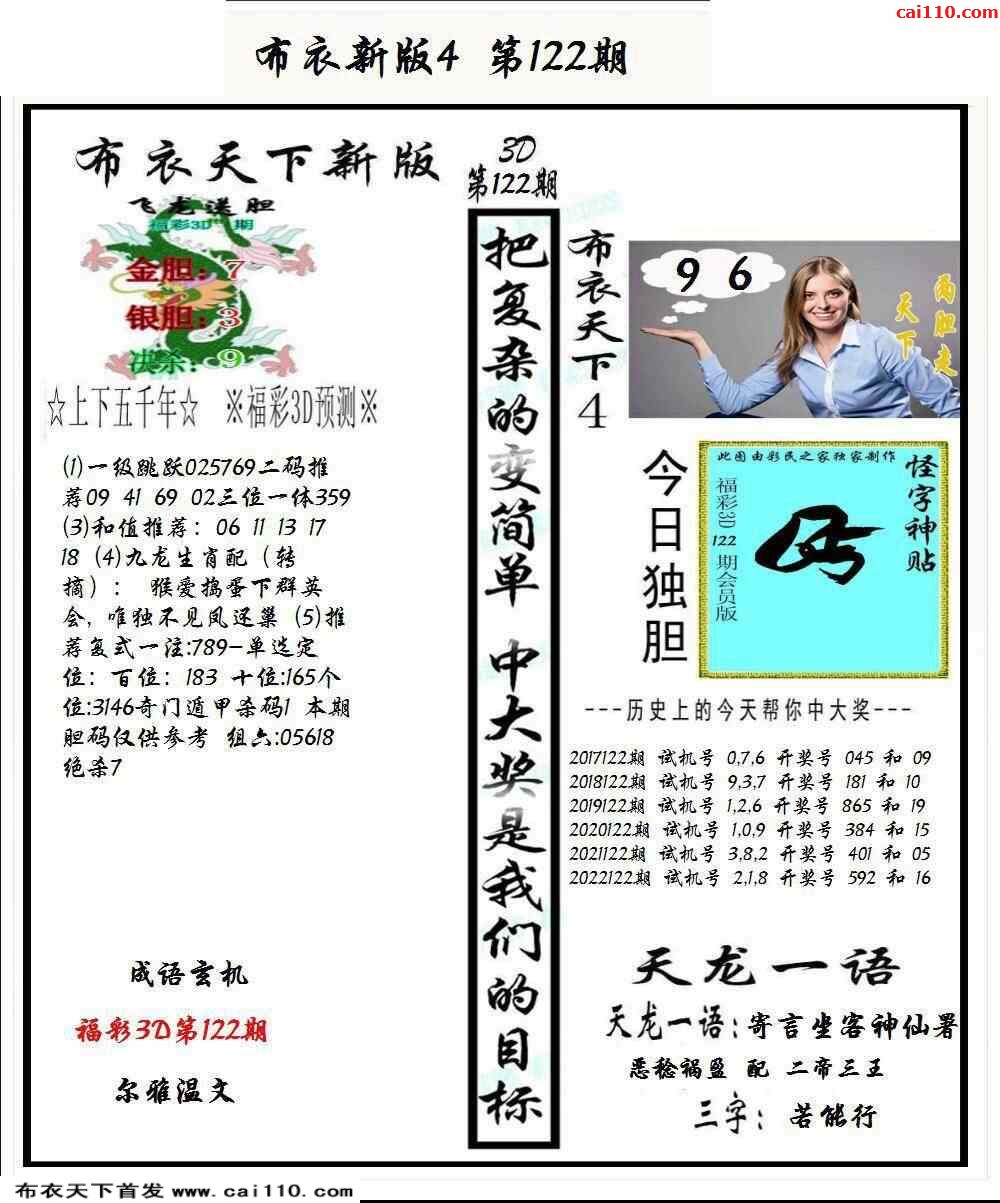 cai110.com
布衣新版4 第122期
布衣天下新版
飞龙送胆
福彩3D 期
金胆：7
银胆：3
决杀：9
☆上下五千年☆ ※福彩3D预测※
(1)一级跳跃025769二码推
荐09 41 69 02三位一体359
(3)和值推荐：06 11 13 17
18 (4)九龙生肖配（转
摘）： 猴爱捣蛋下群英
会，唯独不见凤还巢 (5)推
荐复式一注:789-单选定
位：百位：183 十位:165个
位:3146奇门遁甲杀码1 本期
胆码仅供参考 组六:05618
绝杀7
成语玄机
福彩3D第122期
尔雅温文
3D
第122期
把复杂的变简单 中大奖是我们的目标
布衣天下4
9 6
两胆走
天下
今日独胆
此图由彩民之家独家制作
怪字神贴
福彩3D 122 期会员版
---历史上的今天帮你中大奖---
2017122期 试机号 0,7,6 开奖号 045 和 09
2018122期 试机号 9,3,7 开奖号 181 和 10
2019122期 试机号 1,2,6 开奖号 865 和 19
2020122期 试机号 1,0,9 开奖号 384 和 15
2021122期 试机号 3,8,2 开奖号 401 和 05
2022122期 试机号 2,1,8 开奖号 592 和 16
天龙一语
天龙一语:寄言坐客神仙署
恶稔祸盈 配 二帝三王
三字：若能行
布衣天下首发 www.cai110.com